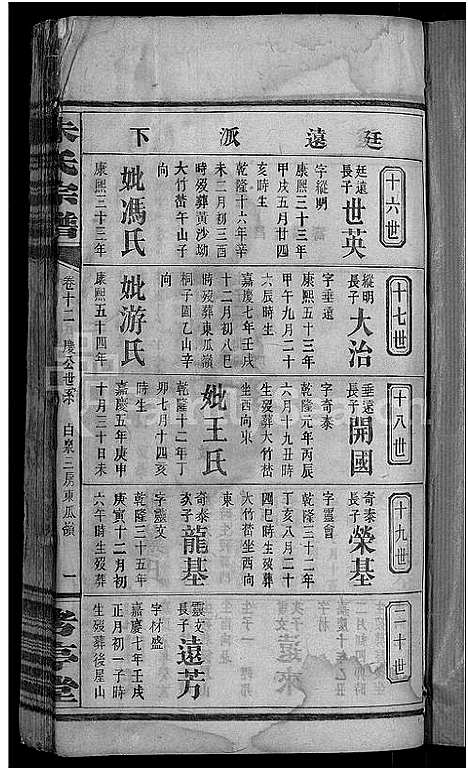 廷遠派下
十六世
廷遠長子
世英
字縱明
康熙三十三年
甲戌五月廿四
亥時生
乾隆十六年辛
未二月初三酉
時歿葬黃沙坳
大竹嵩午山子
向
妣馮氏
康熙三十三年
十七世
縱明長子
大治
字垂遠
康熙五十三年
甲午九月二十
六辰時生
嘉慶七年壬戌
十二月初八巳
時歿葬東瓜嶺
桐子園乙山辛
向
妣游氏
康熙五十四年
十八世
垂遠長子
開國
字奇泰
乾隆元年丙辰
六月十九丑時
生歿葬大竹嵩
坐西向東
妣王氏
乾隆十二年丁
卯七月十四亥
時生
嘉慶五年庚申
十月三十日未
十九世
奇泰長子
榮基
字靈會
乾隆三十二年
丁亥八月二十
四巳時生歿葬
大竹嵩坐西向
東
奇泰次子
龍基
字靈文
乾隆三十五年
庚寅十二月初
六午時生歿葬
二十世
靈文長子
遠芳
字材盛
嘉慶七年壬戌
正月初一子時
生歿葬後屋山
氏宗譜
卷十二
慶公世系
白泉三房東瓜嶺
一
亭堂